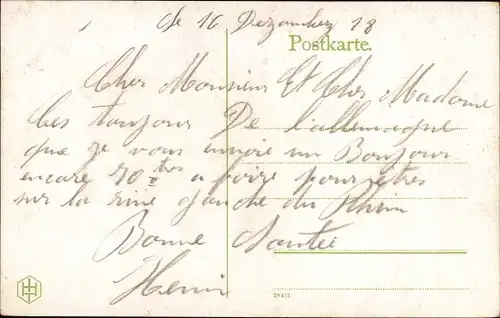 de 16 Dezember 18
Postkarte.
Cher Monsieur Et Cher Madame
Ces toujour De l'allemagne
que ge vous envoie un Bonjour
encore a boire pour etres
sur la rive gauche du Rhin
Bonne Santée
Henri